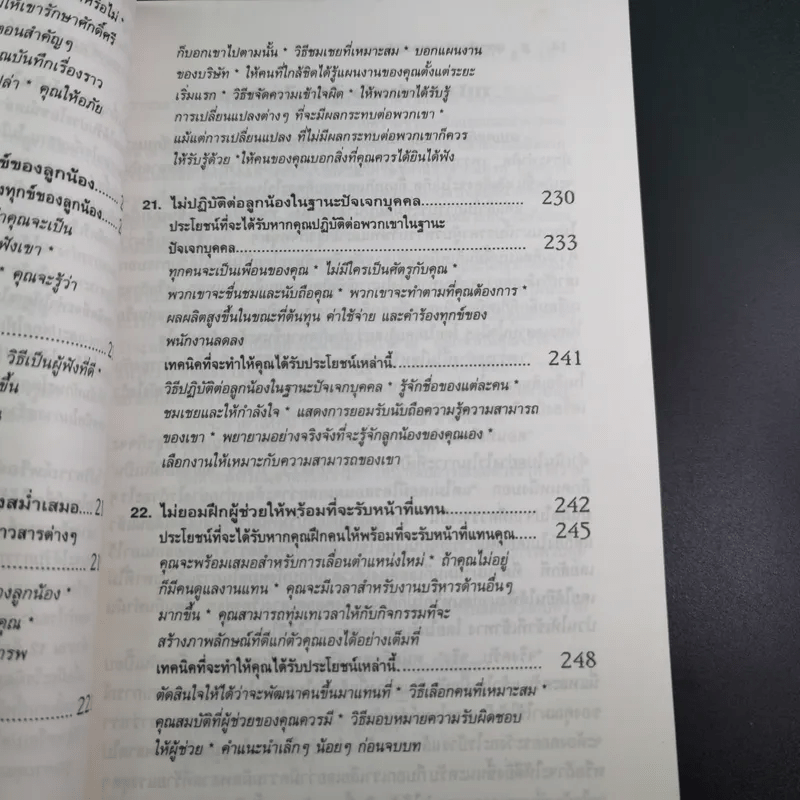 รือไม่
ให้เขารักษาศักดิ์ศรี
อนสำคัญๆ
ุณบันทึกเรื่องราว
ปล่า * คุณให้อภัย
ข์ของลูกน้อง.
งทุกข์ของลูกน้อง
าคุณจะเป็น
ฟังเขา *
* คุณจะรู้ว่า
วิธีเป็นผู้ฟังที่ดี *
ขึ้น
งสม่ำเสมอ....21
าวสารต่างๆ
21
างลูกน้อง *
คุณ *
ารพ
22
ก็บอกเขาไปตามนั้น * วิธีชมเชยที่เหมาะสม * บอกแผนงาน
ของบริษัท * ให้คนที่ใกล้ชิดได้รู้แผนงานของคุณตั้งแต่ระยะ
เริ่มแรก * วิธีขจัดความเข้าใจผิด * ให้พวกเขาได้รับรู้
การเปลี่ยนแปลงต่างๆ ที่จะมีผลกระทบต่อพวกเขา *
แม้แต่การเปลี่ยนแปลง ที่ไม่มีผลกระทบต่อพวกเขาก็ควร
ให้รับรู้ด้วย *ให้คนของคุณบอกสิ่งที่คุณควรได้ยินได้ฟัง
21. ไม่ปฏิบัติต่อลูกน้องในฐานะปัจเจกบุคคล.......................230
ประโยชน์ที่จะได้รับหากคุณปฏิบัติต่อพวกเขาในฐานะ
ปัจเจกบุคคล.......................................................233
ทุกคนจะเป็นเพื่อนของคุณ * ไม่มีใครเป็นศัตรูกับคุณ *
พวกเขาจะชื่นชมและนับถือคุณ * พวกเขาจะทำตามที่คุณต้องการ *
ผลผลิตสูงขึ้นในขณะที่ต้นทุน ค่าใช้จ่าย และคำร้องทุกข์ของ
พนักงานลดลง
เทคนิคที่จะทำให้คุณได้รับประโยชน์เหล่านี้..........................241
วิธีปฏิบัติต่อลูกน้องในฐานะปัจเจกบุคคล * รู้จักชื่อของแต่ละคน *
ชมเชยและให้กำลังใจ * แสดงการยอมรับนับถือความรู้ความสามารถ
ของเขา * พยายามอย่างจริงจังที่จะรู้จักลูกน้องของคุณเอง *
เลือกงานให้เหมาะกับความสามารถของเขา
22. ไม่ยอมฝึกผู้ช่วยให้พร้อมที่จะรับหน้าที่แทน....................242
ประโยชน์ที่จะได้รับหากคุณฝึกคนให้พร้อมที่จะรับหน้าที่แทนคุณ.....245
คุณจะพร้อมเสมอสำหรับการเลื่อนตำแหน่งใหม่ * ถ้าคุณไม่อยู่
ก็มีคนดูแลงานแทน * คุณจะมีเวลาสำหรับงานบริหารด้านอื่นๆ
มากขึ้น * คุณสามารถทุ่มเทเวลาให้กับกิจกรรมที่จะ
สร้างภาพลักษณ์ที่ดีแก่ตัวคุณเองได้อย่างเต็มที่
เทคนิคที่จะทำให้คุณได้รับประโยชน์เหล่านี้..........................248
ตัดสินใจให้ได้ว่าจะพัฒนาคนขึ้นมาแทนที่ * วิธีเลือกคนที่เหมาะสม *
คุณสมบัติที่ผู้ช่วยของคุณควรมี * วิธีมอบหมายความรับผิดชอบ
ให้ผู้ช่วย * คำแนะนำเล็กๆ น้อยๆ ก่อนจบบท